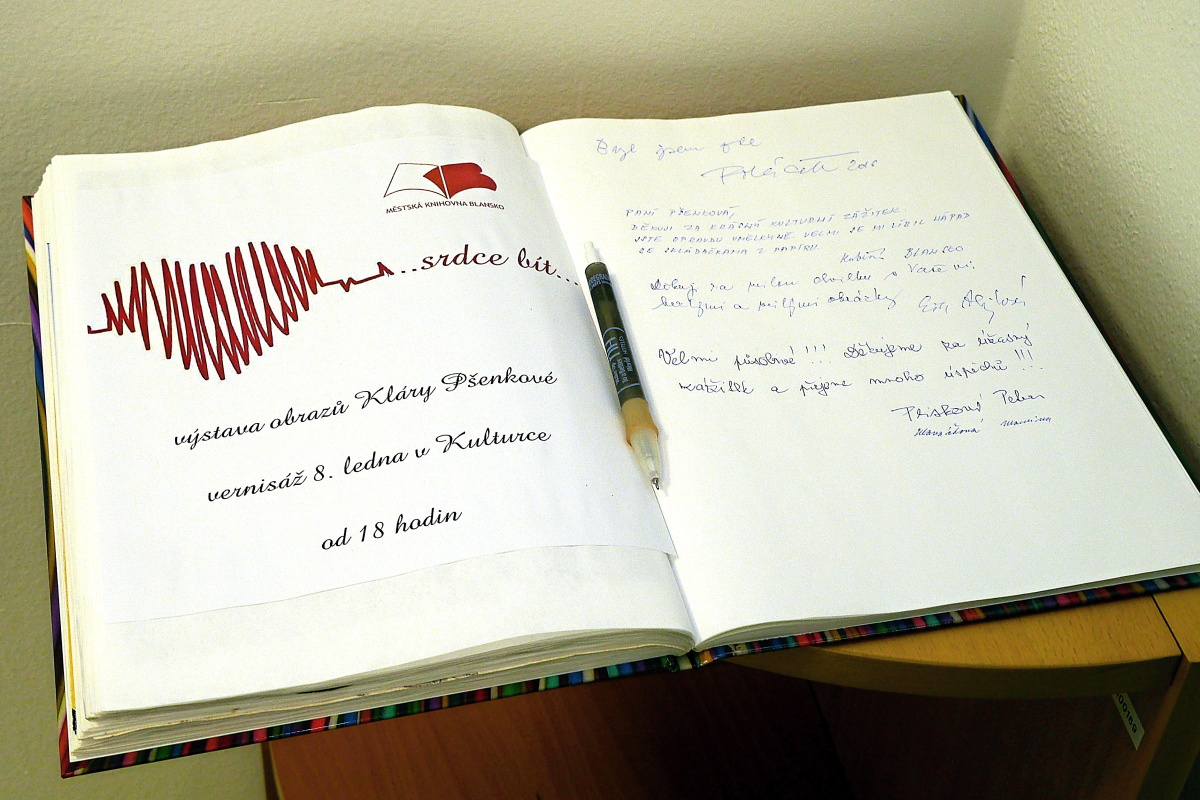 MĚSTSKÁ KNIHOVNA BLANSKO
...srdce bít...
výstava obrazů Kláry Pšenkové
vernisáž 8. ledna v Kulturce
od 18 hodin
Byl jsem zde
Poláček 2016
PANÍ PŠENKOVÁ,
DĚKUJI ZA KRÁSNÝ KULTURNÍ ZÁŽITEK.
JSTE OPRAVDU UMĚLKYNĚ. VELMI SE MI LÍBIL NÁPAD
SE SKLÁDAČKAMI Z PAPÍRU.
BLANSKO
Děkuji za milou chvilku s Vaší
a milými obrázky
Velmi působivé!!! Děkujeme za úžasný
zážitek a přejeme mnoho úspěchů!!!
Petra
00189